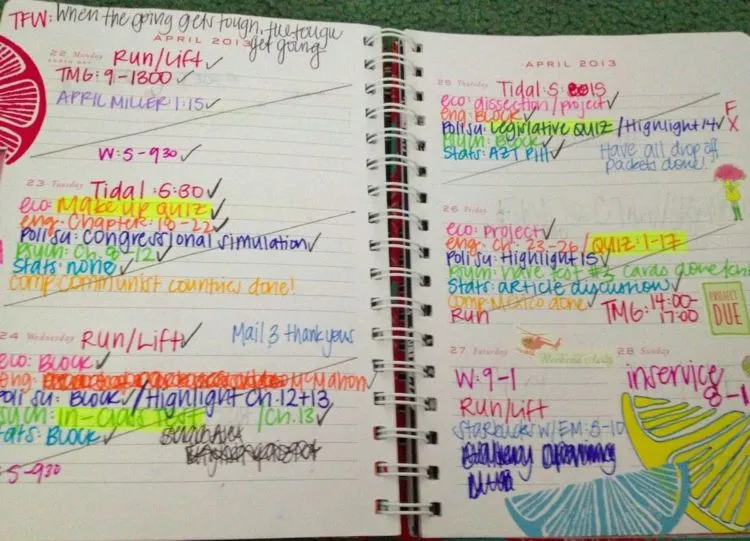 TFW: When the going gets tough, the tough
get going
APRIL 2013
22 Monday
EARTH DAY
Run/Lift ✓
TM6: 9-1300 ✓
APRIL MILLER 1:15 ✓
W: 5-930 ✓
23 Tuesday
Tidal: 5:30 ✓
eco: Make up quiz ✓
eng: Chapter 18-22 ✓
Poli su: congressional simulation ✓
Psych: Ch. 8-12 ✓
Stats: none ✓
Comp: Communist countries done!
24 Wednesday
Run/Lift ✓
Mail 3 thank yous
eco: BLOCK ✓
eng:
Mahon
poli su: BLOCK ✓ /Highlight Ch. 12+13
psych: in-class test /Ch. 13 ✓
stats: BLOCK ✓
5-930
APRIL 2013
25 Thursday
Tidal: 5:15
eco: dissection/project ✓
eng: BLOCK ✓
Poli su: Legislative QUIZ /Highlight 14 ✓
F
X
Psych: Block ✓
Stats:
Have all drop off
packets done!
26 Friday
eco: project ✓
eng: Ch. 23-26 / QUIZ: 1-17
Poli su: Highlight 15 ✓
Psych: have test #3 cards done
Stats: article discussion ✓
Comp: Mexico done ✓
Run
TM6: 14:00-
17:00
PROJECT
DUE
27 Saturday
28 Sunday
W: 9-1
inservice
8-1
Run/Lift
Starbucks w/EM: 8-10